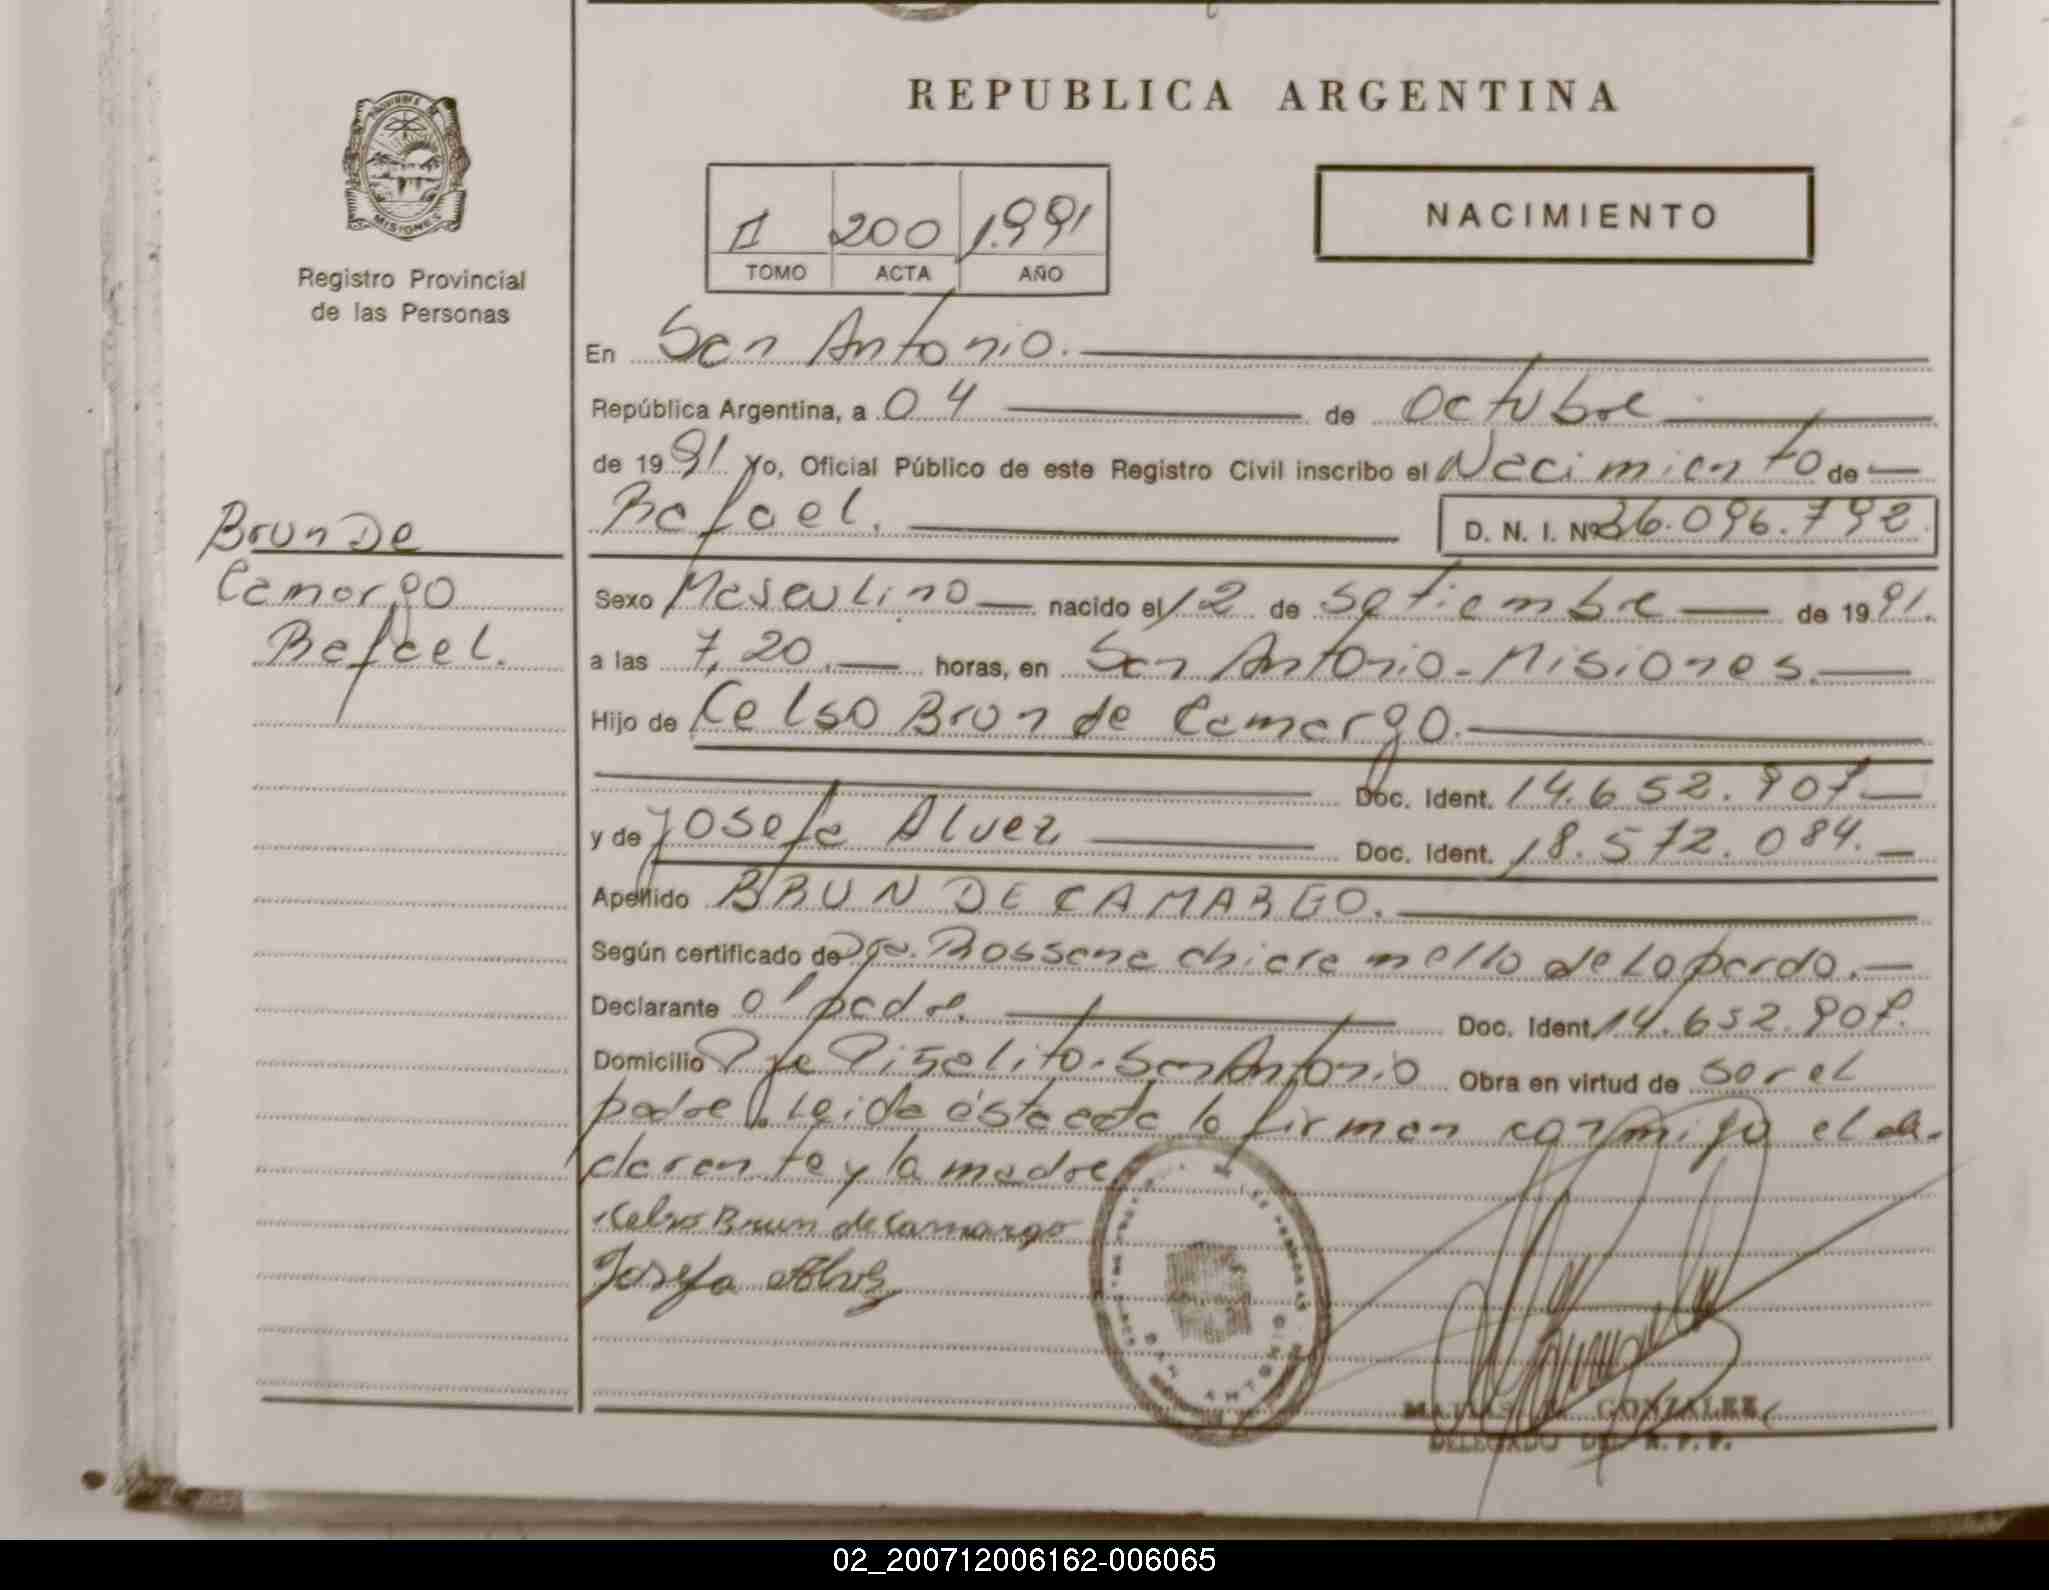 REPUBLICA ARGENTINA
MISIONES
Registro Provincial
de las Personas
NACIMIENTO
II 200 1.991
TOMO ACTA AÑO
En San Antonio.
República Argentina, a 04 de Octubre
de 1991 Yo, Oficial Público de este Registro Civil inscribo el Nacimiento de
Rafael. D. N. I. Nº 36.096.792
Brun De
Camargo
Rafael.
Sexo Masculino nacido el 12 de Setiembre de 1991.
a las 7,20 horas, en San Antonio - Misiones.
Hijo de Celso Brun de Camargo.
Doc. Ident. 14.652.907
y de Josefa Alvez Doc. Ident. 18.572.084.
Apellido BRUN DE CAMARGO.
Según certificado de Dra. Rossana chiara mello de Lopardo.
Declarante el padre. Doc. Ident. 14.652.907.
Domicilio Pje Piñalito - San Antonio Obra en virtud de ser el
padre. Leida ésta acta la firman conmigo el de-
clarante y la madre
Celso Brun de Camargo
Josefa Alvez
SAN ANTONIO
GONZALEZ
DELEGADO DEL R.P.P.
02_200712006162-006065